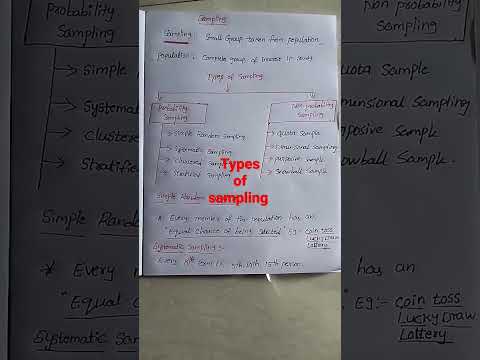 Sampling
Sampling: Small Group taken from population.
population: Complete group of interest in study
Types of Sampling
Probability Sampling
Simple Random Sampling
Systematic Sampling
Clustered Sampling
Stratified Sampling
Non probability Sampling
Quota Sample
Dimensional Sampling
Purposive Sample
Snowball Sample
Types
of
sampling
Simple Random
* Every member of the population has an
"Equal Chance of being Selected" Eg:- Coin toss
Lucky Draw
Lottery
Systematic Sampling:-
Every
5th, 10th, 15th person.
Probability
Sampling
Simple
Systematic
Clustere
Stratifie
Non probability
Sampling
Quota Sample
mensional Sampling
rposive Sample
owball Sample.
Simple Random
* Every
has an
"Equal
" Eg:- Coin toss
Lucky Draw
Lottery
Systematic Sam